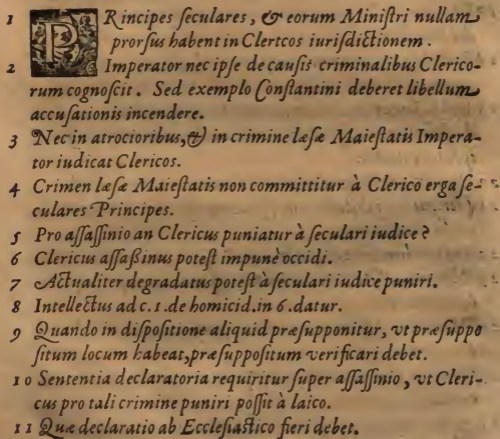 1 PRincipes ſeculares, & eorum Miniſtri nullam
prorſus habent in Clericos iuriſdictionem.
2 Imperator nec ipſe de cauſis criminalibus Clerico-
rum cognoſcit. Sed exemplo Conſtantini deberet libellum
accuſationis incendere.
3 Nec in atrocioribus, & in crimine læſæ Maieſtatis Impera-
tor iudicat Clericos.
4 Crimen læſæ Maieſtatis non committitur à Clerico erga ſe-
culares Principes.
5 Pro aſſaſſinio an Clericus puniatur à ſeculari iudice?
6 Clericus aſſaßinus poteſt impunè occidi.
7 Actualiter degradatus poteſt à ſeculari iudice puniri.
8 Intellectus ad c. 1. de homicid. in 6. datur.
9 Quando in diſpoſitione aliquid præſupponitur, vt præſuppo
ſitum locum habeat, præſuppoſitum verificari debet.
10 Sententia declaratoria requiritur ſuper aſſaſſinio, vt Cleri-
cus pro tali crimine puniri poſſit à laico.
11 Quæ declaratio ab Eccleſiaſtico fieri debet.